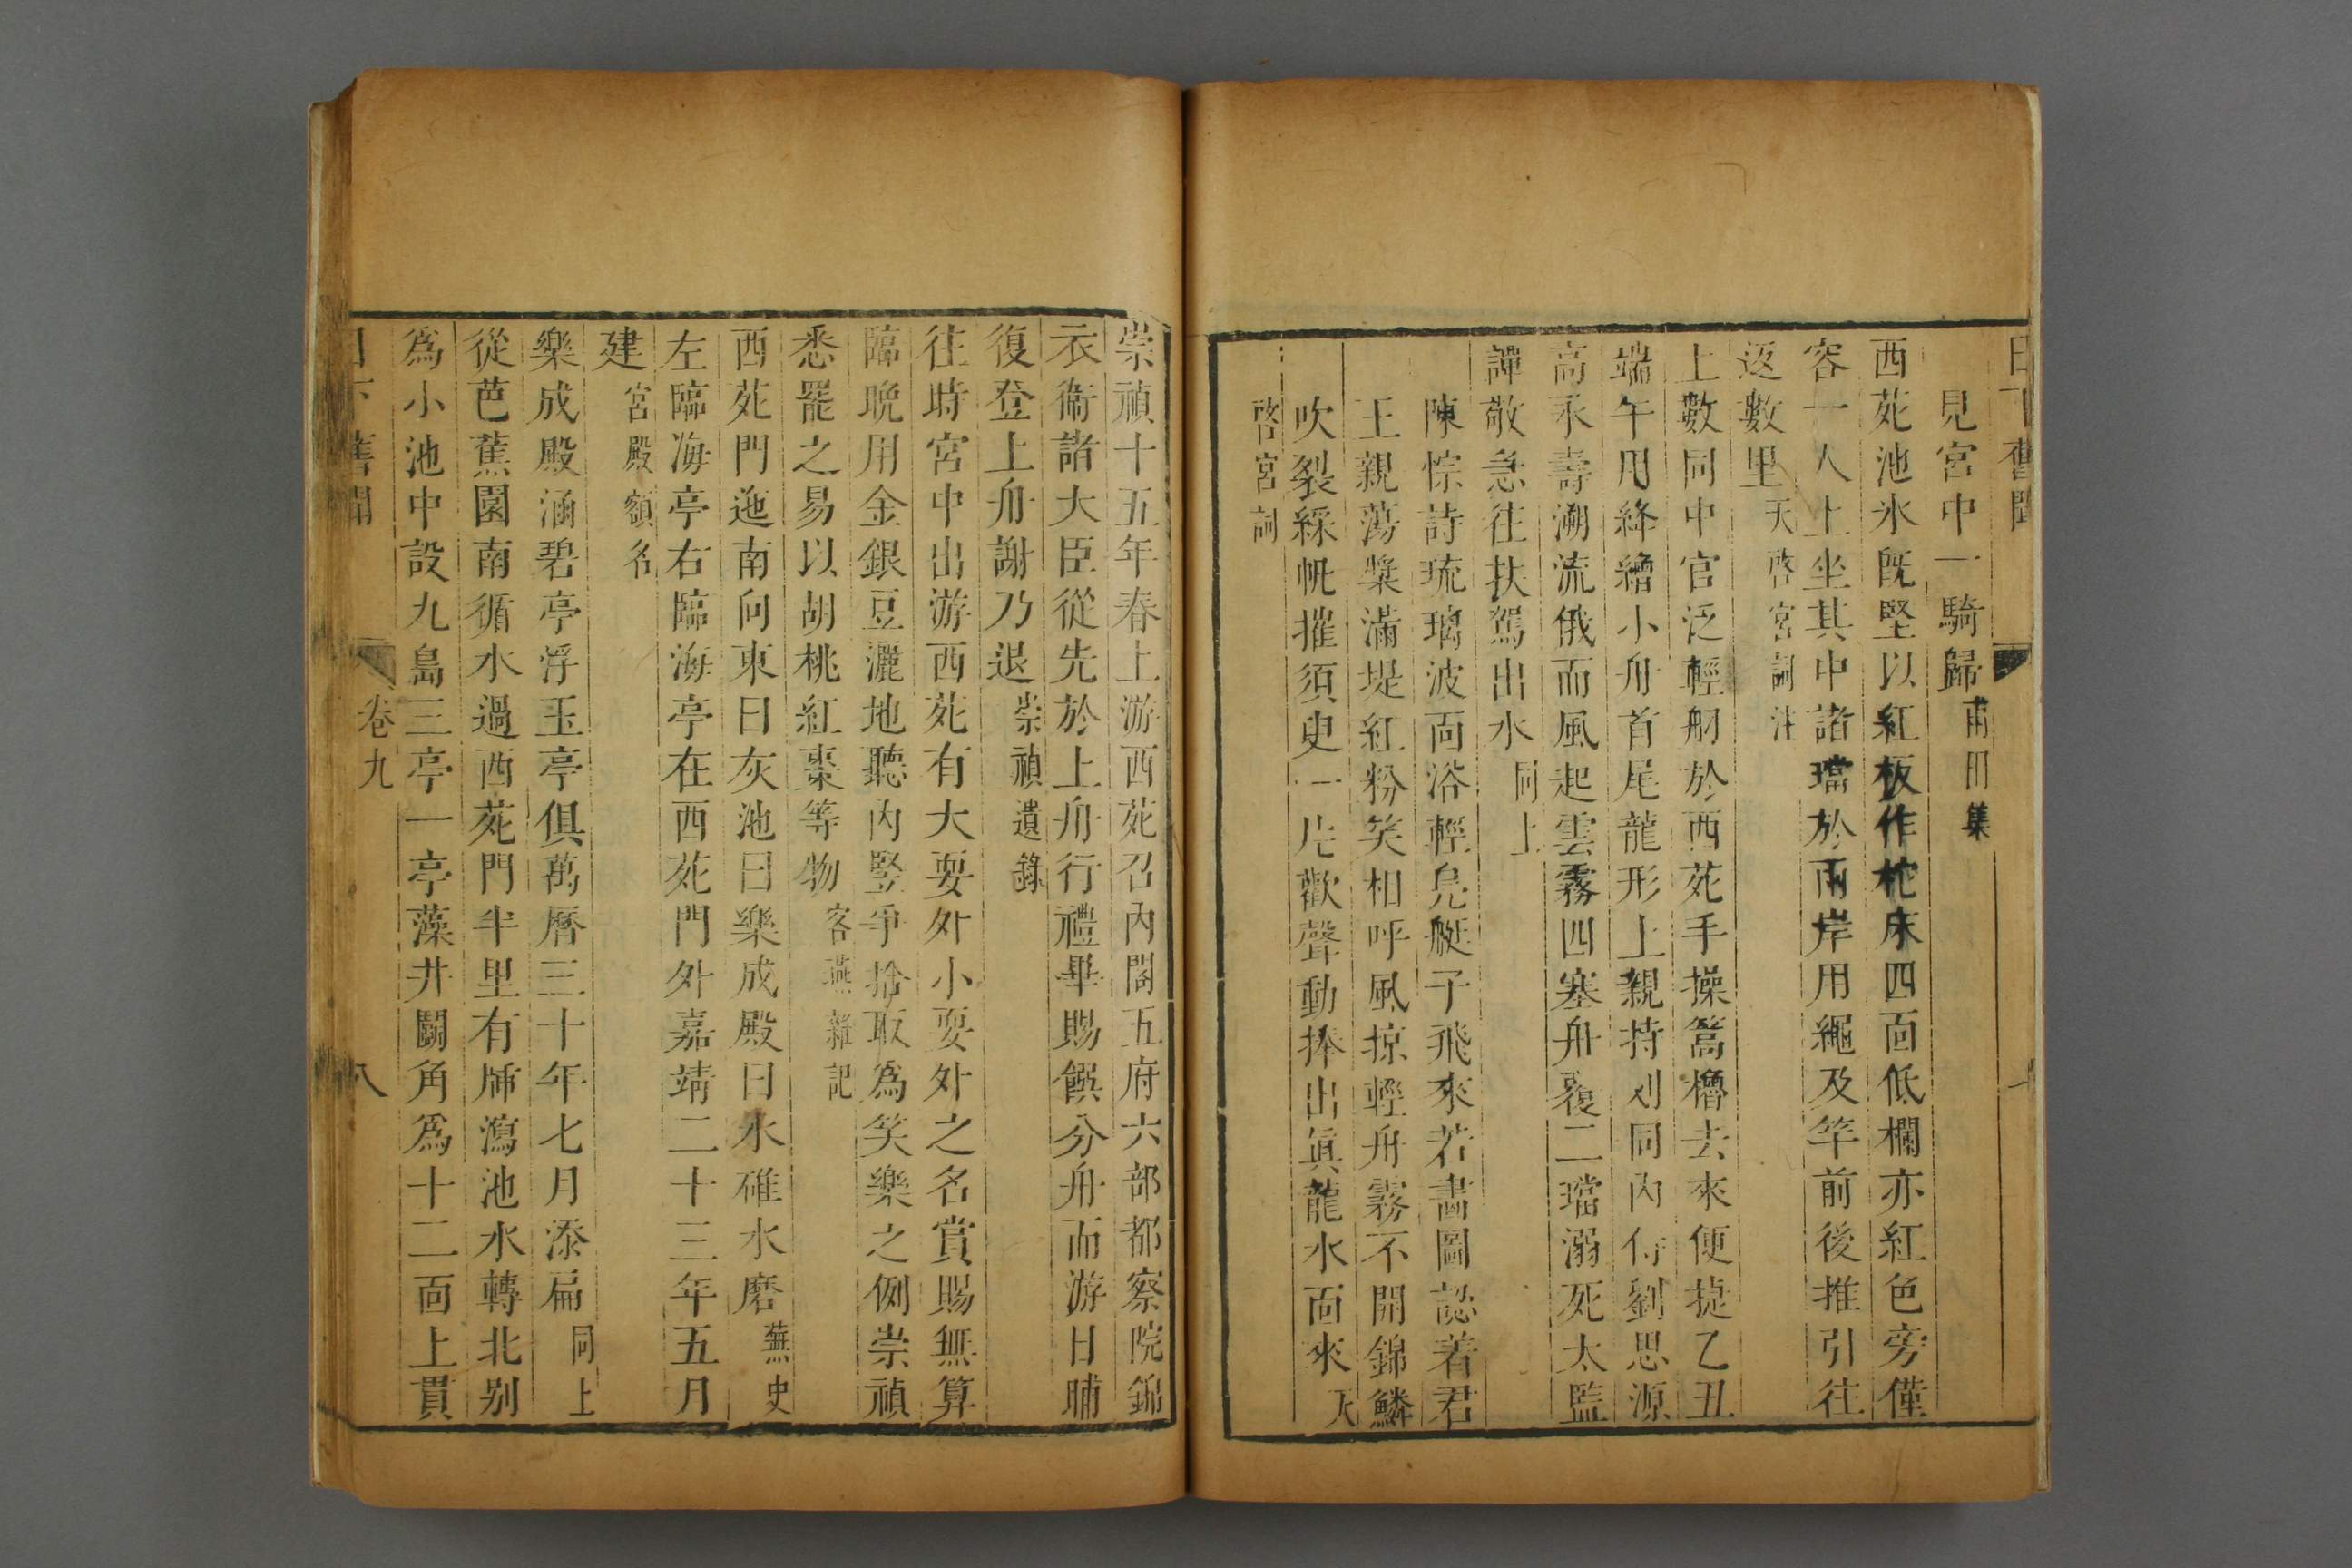 日下舊聞
見宮中一騎歸甫田集
西苑池氷旣堅以紅板作柁床四面低欄亦紅色旁僅
容一人上坐其中諸璫於兩岸用繩及竿前後推引往
返數里天啓宮詞注
上數同中官泛輕舠於西苑手操篙櫓去來便捷乙丑
端午用絳繒小舟首尾龍形上親持刈同內侍劉思源
高永壽溯流俄而風起雲霧四塞舟覆二璫溺死太監
譚敬急往扶駕出水同上
陳悰詩琉璃波面浴輕鳧艇子飛來若畫圖認著君
王親蕩槳滿堤紅粉笑相呼風掠輕舟霧不開錦鱗
吹裂綵帆摧須臾一片歡聲動捧出眞龍水面來天
啓宮詞
崇禎十五年春上游西苑召內閣五府六部都察院錦
衣衞諸大臣從先於上舟行禮畢賜饌分舟而游日晡
復登上舟謝乃退崇禎遺錄
往時宮中出游西苑有大耍外小耍外之名賞賜無算
臨晩用金銀豆灑地聽內豎爭拾取爲笑樂之例崇禎
悉罷之易以胡桃紅棗等物客燕雜記
西苑門迤南向東曰灰池曰樂成殿曰水碓水磨蕪史
左臨海亭右臨海亭在西苑門外嘉靖二十三年五月
建宮殿額名
樂成殿涵碧亭浮玉亭俱萬曆三十年七月添扁同上
從芭蕉園南循水過西苑門半里有牐瀉池水轉北別
爲小池中設九島三亭一亭藻井鬬角爲十二面上貫
日下舊聞 卷九 八